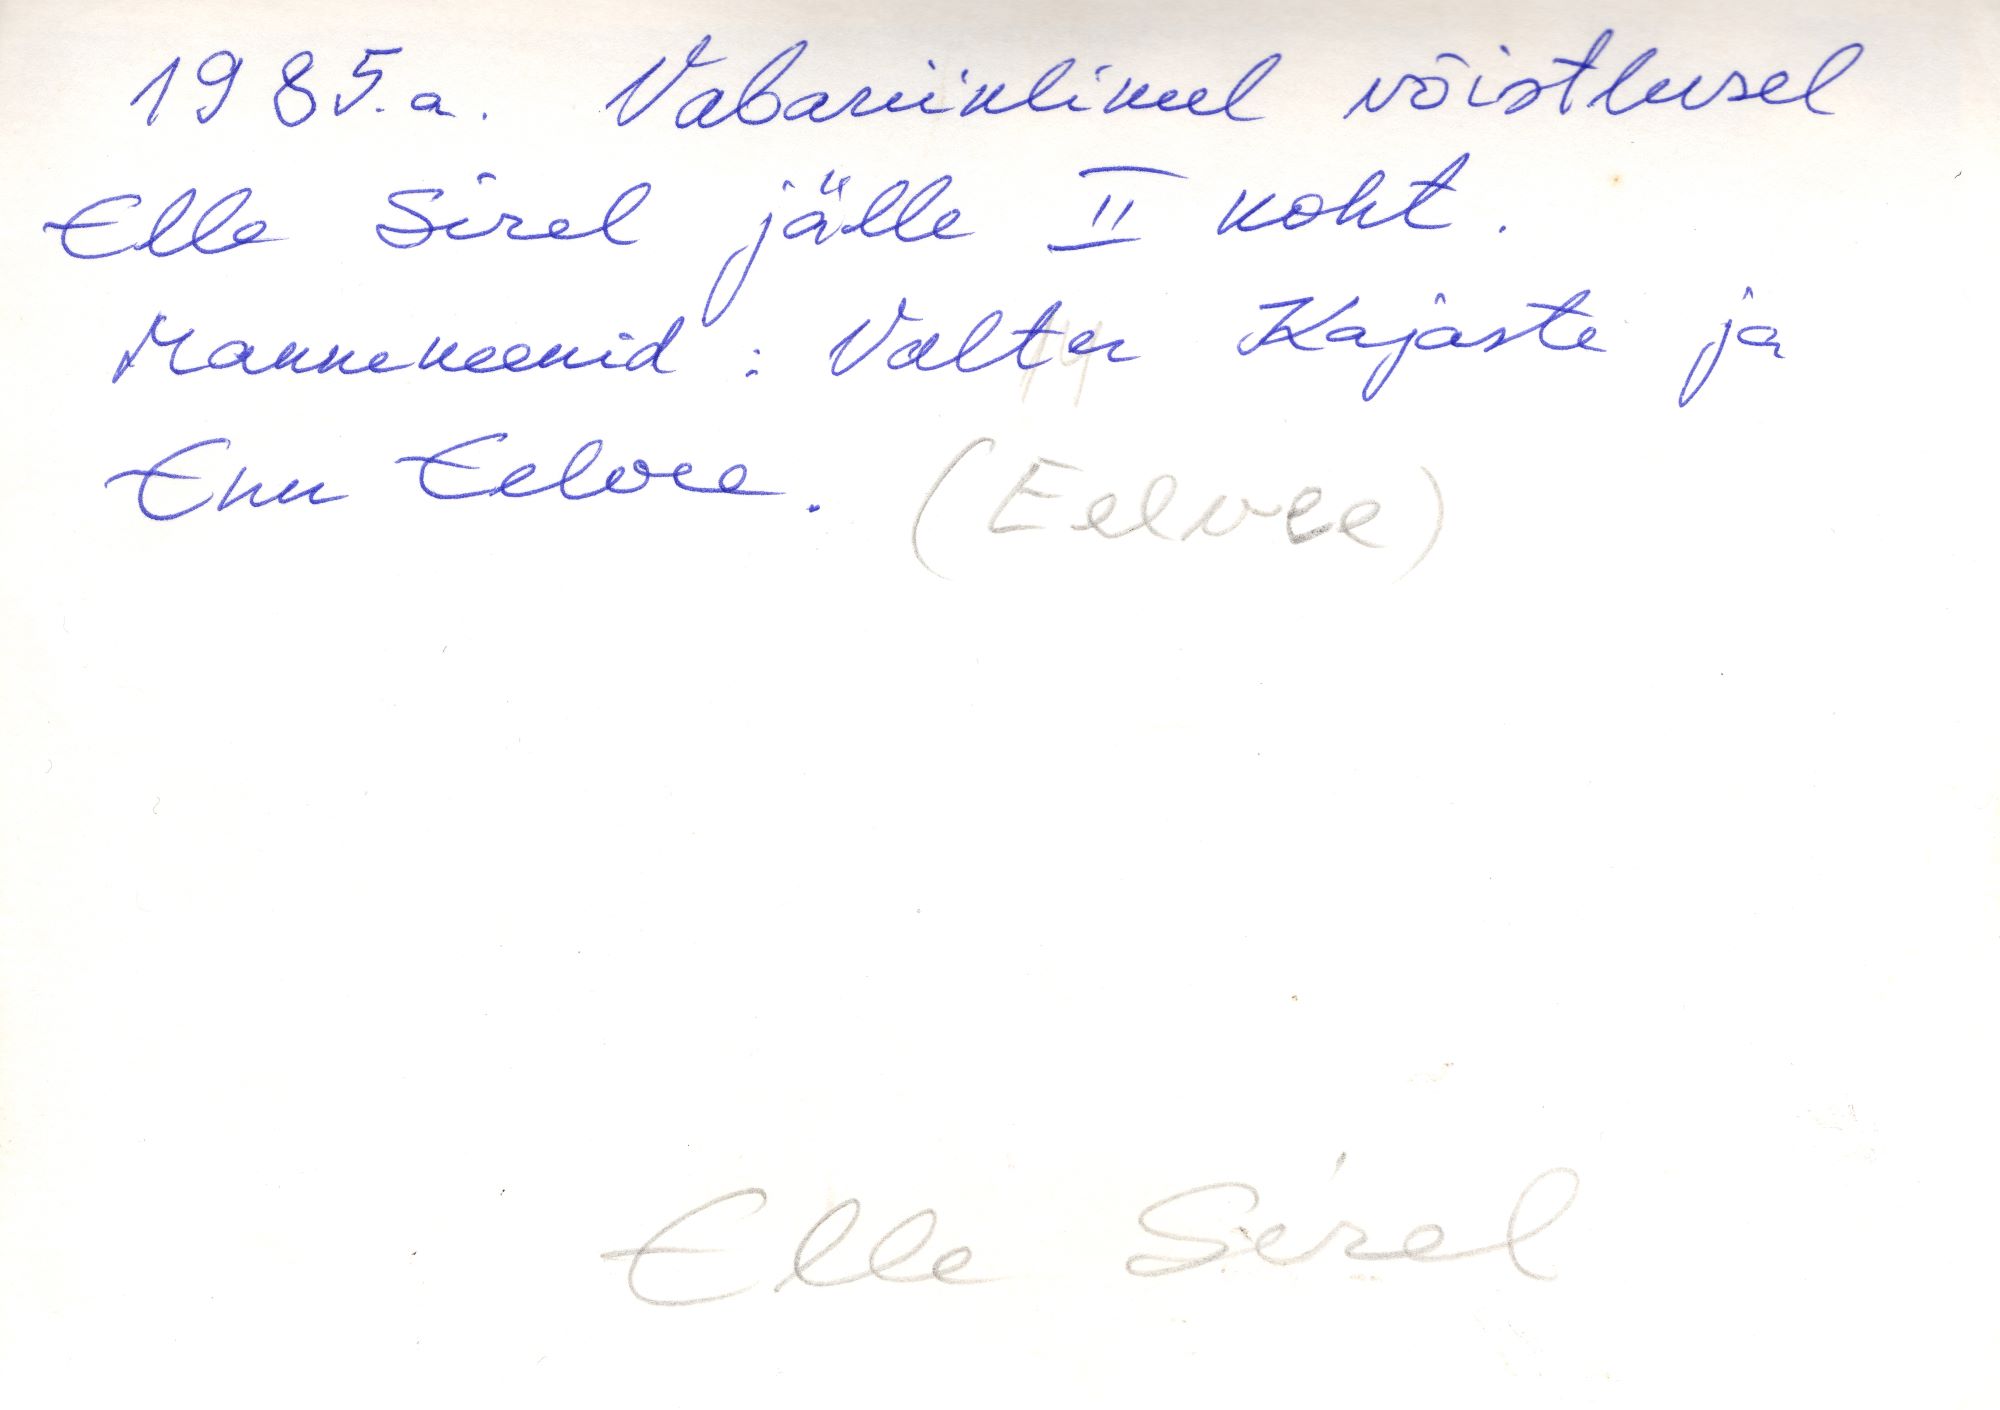 1985.a. Vabariiklikul võistlusel
Elle Sirel jälle II koht.
Mannekeenid: Valter Kajaste ja
Enn Eelvee. (Eelvee)
14
Elle Sirel